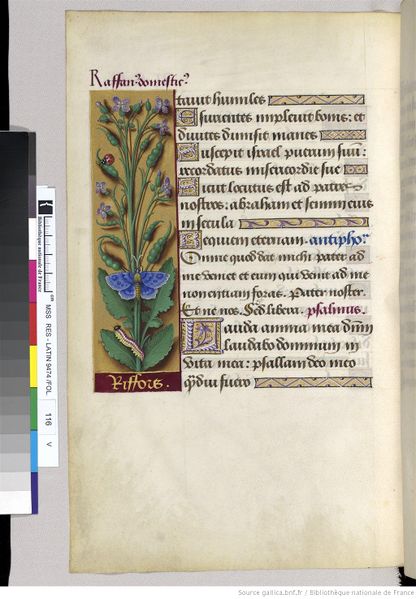 Raffan. domestic9
tavit humiles
Esurientes impleuit bonis: et
diuites dimisit manes
Suscepit israel puerum suū:
recordatus misericordie sue
Sicut locutus est ad patres
nostros: abraham et semini eius
in secula
Requiem eternam. antipho.
Omne quod dat michi pater ad
me veniet et eum qui venit ad me
non eniciam foras. Pater noster.
Et ne nos. Sed libera. psalmus.
Lauda anima mea dūm
laudabo dominum in
vita mea: psallam deo meo
q̄diu fuero
Riffors.
Bibliothèque nationale de France
MSS RES - LATIN 9474 /FOL
116 V
Source gallica.bnf.fr / Bibliothèque nationale de France